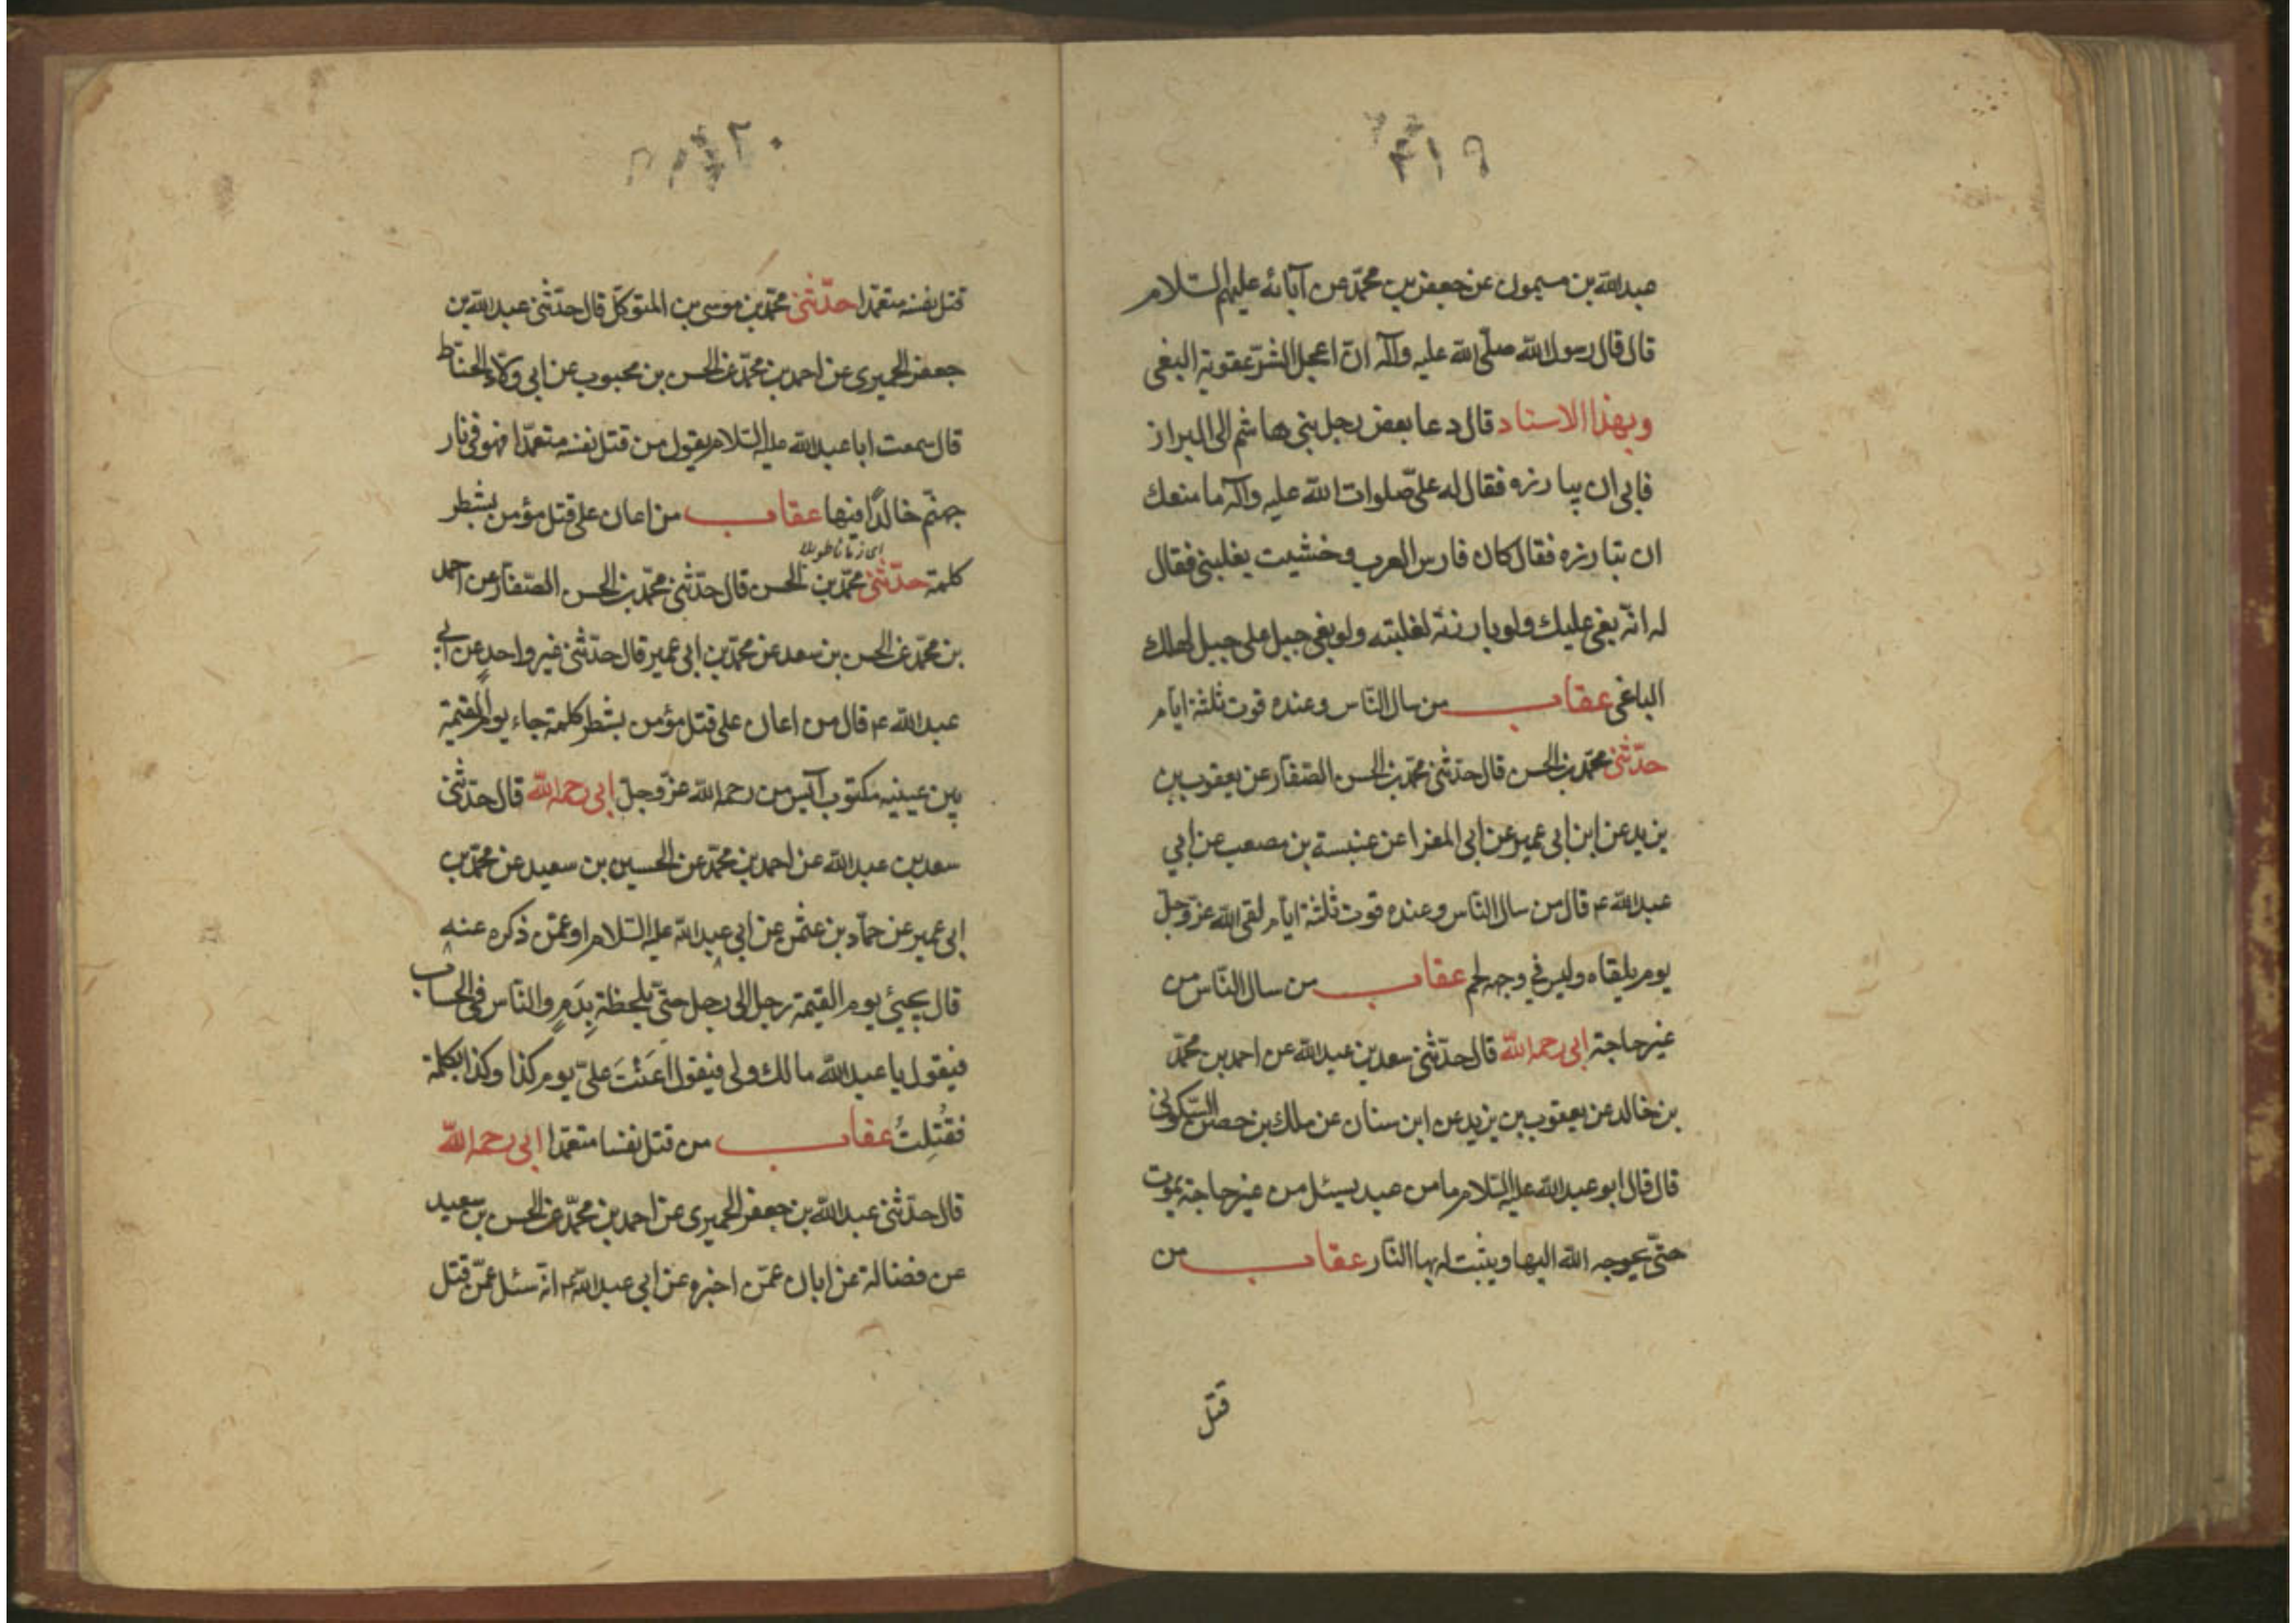 ٢١٩
عبدالله بن ميمون عن جعفر بن محمّد عن آبائه عليهم السّلام
قال قال رسول الله صلّى الله عليه وآله انّ اعجل الشرّ عقوبة البغى
وبهذا الاسناد قال دعا بعض رجل بنى هاشم الى البراز
فابى ان يبارزه فقال له علىّ صلوات الله عليه وآله ما منعك
ان تبارزه فقال كان فارس العرب وخشيت يغلبنى فقال
له انّه بغى عليك ولو بارزته لغلبته ولو بغى جبل على جبل لهلك
الباغى عقاب من سال النّاس وعنده قوت ثلثة ايّام
حدّثنى محمّد بن الحسن قال حدّثنى محمّد بن الحسن الصّفّار عن يعقوب بن
يزيد عن ابن ابى عمير عن ابى المغرا عن عنبسة بن مصعب عن ابي
عبدالله ع قال من سال النّاس وعنده قوت ثلثة ايّام لقى الله عزّ وجلّ
يوم يلقاه وليس في وجهه لحم عقاب من سال النّاس من
غير حاجة ابى رحمه الله قال حدّثنى سعد بن عبدالله عن احمد بن محمّد
بن خالد عن يعقوب بن يزيد عن ابن سنان عن ملك بن حصين السّكونى
قال قال ابو عبدالله عليه السّلام ما من عبد يسئل من غير حاجة يموت
حتّى يحوجه الله اليها ويثبت له بها النّار عقاب من
قتل
٢٢٠
قتل نفسه متعمّدا حدّثنى محمّد بن موسى بن المتوكّل قال حدّثنى عبدالله بن
جعفر الحميرى عن احمد بن محمّد عن الحسن بن محبوب عن ابى ولّاد الحنّاط
قال سمعت ابا عبدالله عليه السّلام يقول من قتل نفسه متعمّدا فهو فى نار
جهنّم خالدًا فيها عقاب من اعان على قتل مؤمن بشطر
كلمة حدّثنى محمّد بن الحسن قال حدّثنى محمّد بن الحسن الصّفّار عن احمد
بن محمّد عن الحسن بن سعد عن محمّد بن ابى عمير قال حدّثنى غير واحد عن ابى
عبدالله ع قال من اعان على قتل مؤمن بشطر كلمة جاء يوم القيمة
بين عينيه مكتوب آيس من رحمه الله عزّ وجلّ ابى رحمه الله قال حدّثنى
سعد بن عبدالله عن احمد بن محمّد عن الحسين بن سعيد عن محمّد بن
ابى عمير عن حمّاد بن عثمن عن ابي عبدالله عليه السّلام او عمّن ذكره عنه
قال يجيئ يوم القيمة رجل الى رجل حتّى يلحظة بِدَمٍ والنّاس فى الحساب
فيقول يا عبدالله مالك ولى فيقول اَعَنْتَ علىّ يوم كذا وكذا بكلمة
فقُتِلتُ عقاب من قتل نفسا متعمّدا ابى رحمه الله
قال حدّثنى عبدالله بن جعفر الحميرى عن احمد بن محمّد عن الحسن بن سعيد
عن فضالة عن ابان عمّن اخبره عن ابى عبدالله ع انّه سئل عمّن قتل